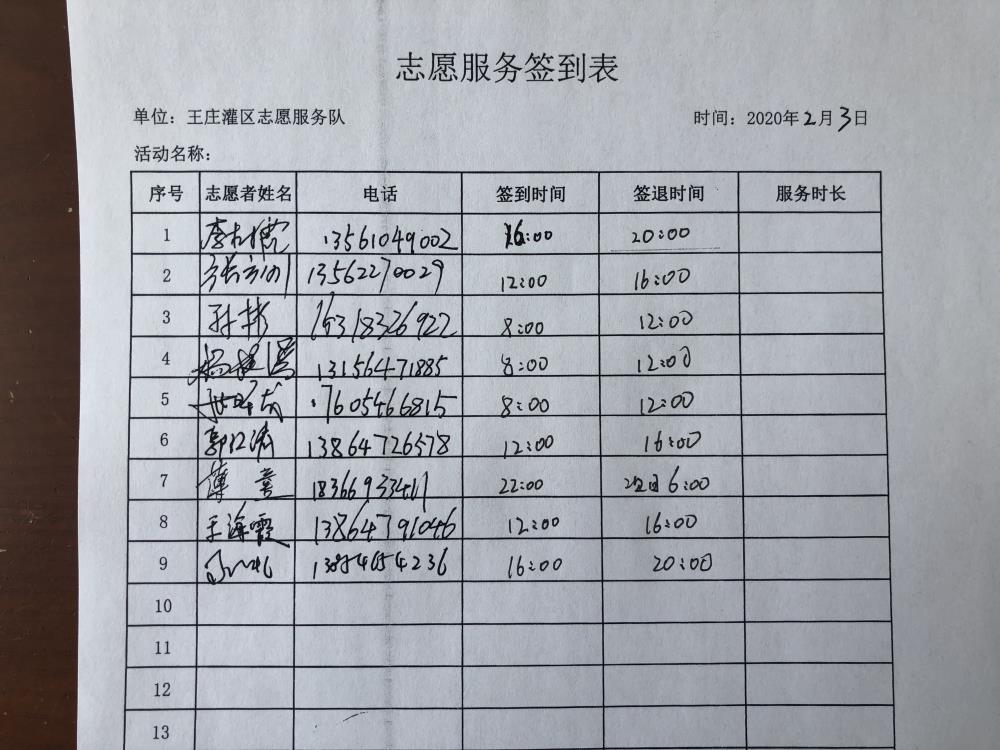 志愿服务签到表
单位：王庄灌区志愿服务队 时间：2020年2月3日
活动名称：
序号 志愿者姓名 电话 签到时间 签退时间 服务时长
1 13561049002 16:00 20:00
2 13562270029 12:00 16:00
3 孙彬 12:00 8:00
4 13156471885 8:00 12:00
5 17605466815 8:00 12:00
6 13864726578 12:00 16:00
7 薄 18366933411 22:00 6:00
8 王海霞 13864791046 12:00 16:00
9 16:00 20:00
10
11
12
13